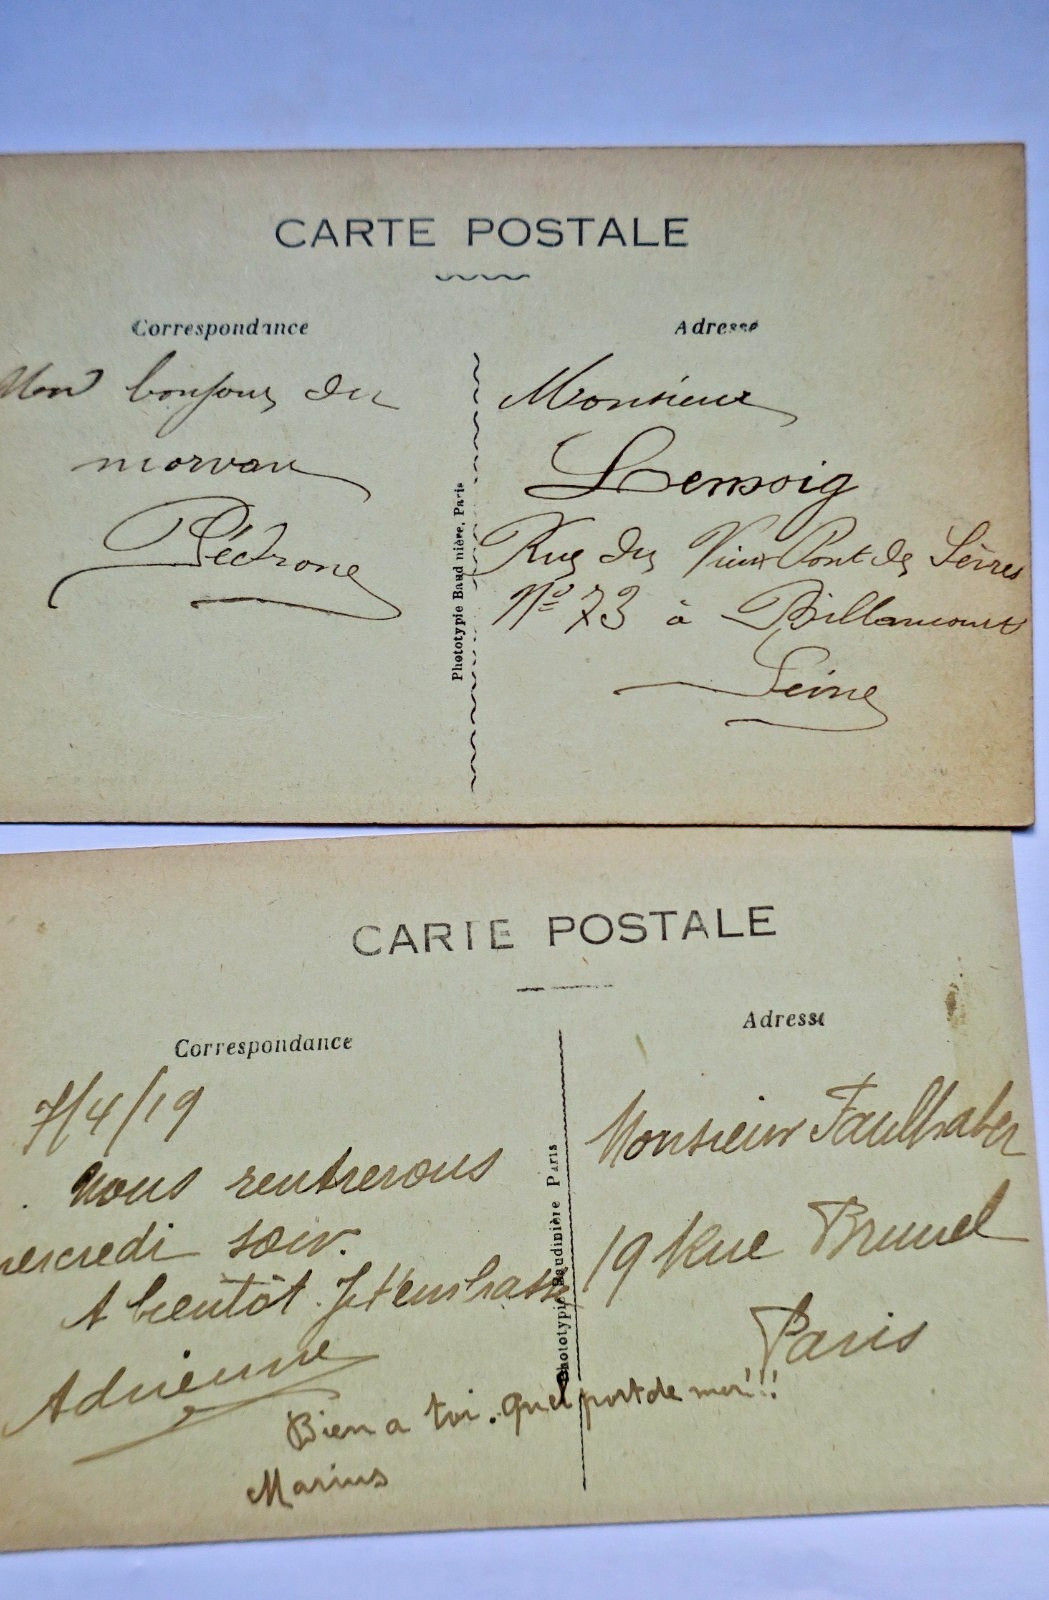 CARTE POSTALE
Correspondance
Adresse
Mon bonjour du
morvan
Pédrone
Phototypie Baudinière, Paris
Monsieur
Lemoig
Rue du Vieux Pont de Sèvres
Nº 73 à Billancourt
Seine
CARTE POSTALE
Correspondance
Adresse
7/4/19
Nous rentrerons
mercredi soir.
A bientôt. Je t'embrasse
Adrienne
Bien a toi. Quel port de mer!!!
Marius
Phototypie Baudinière Paris
Monsieur Faulhaber
19 Rue Brunel
Paris